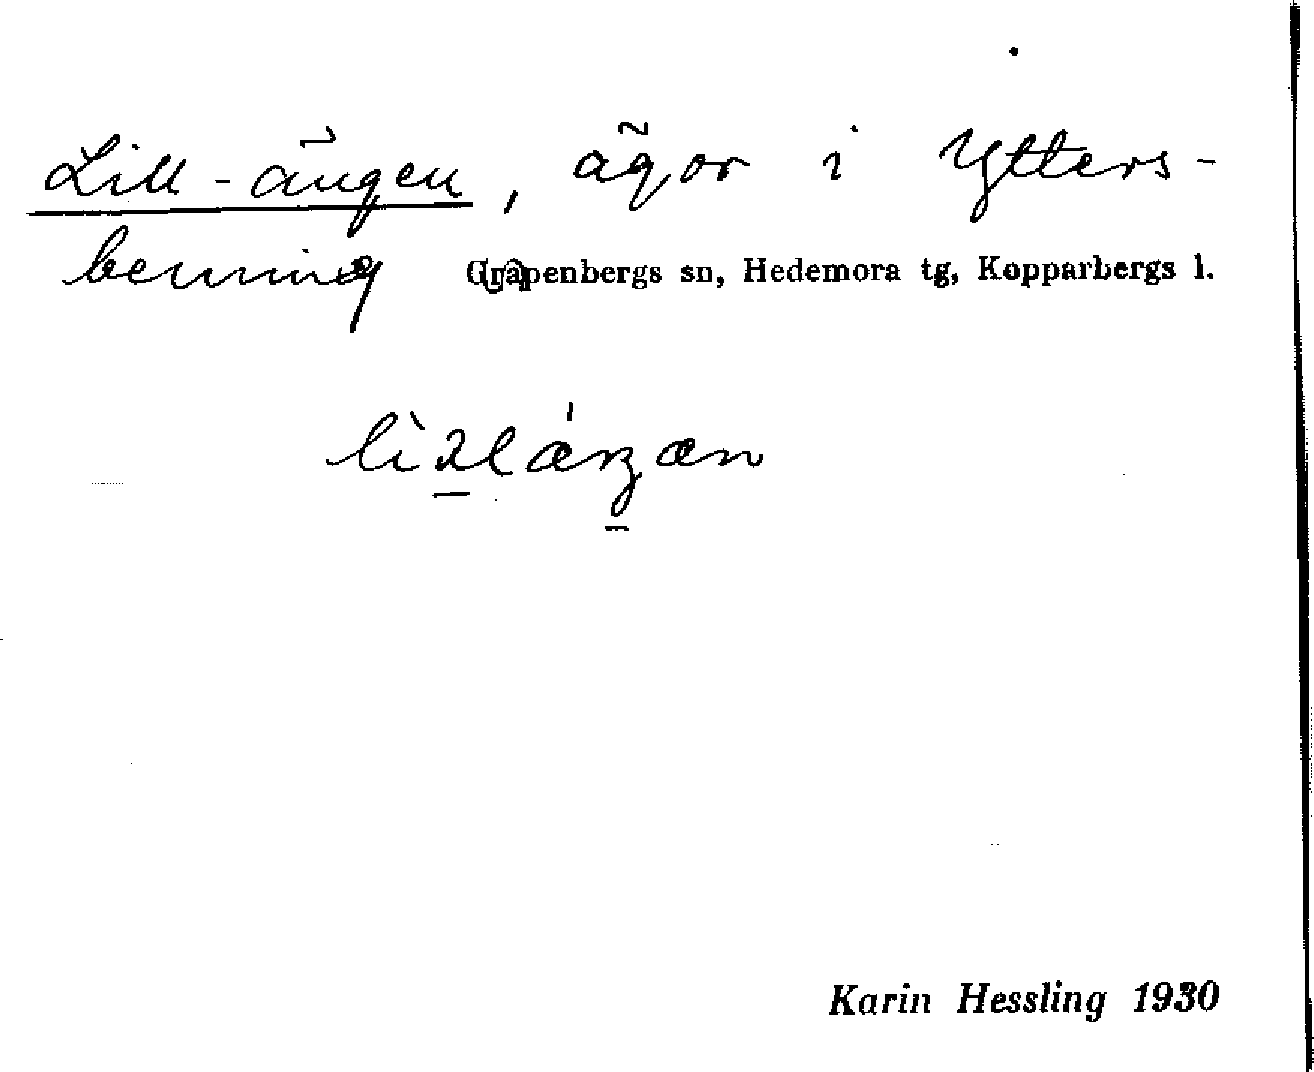 Lill-ängen, ägor i Ytters-
benning Grapenbergs sn, Hedemora tg, Kopparbergs l.
Karin Hessling 1930